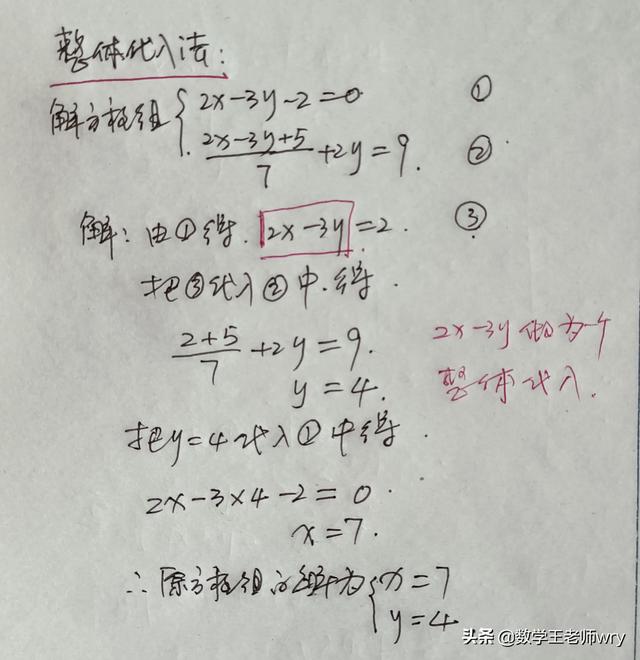 整体代入法:
解方程组 { 2x-3y-2=0 ①
(2x-3y+5)/7 +2y=9. ②
解: 由①得. 2x-3y =2. ③
把③代入②中.得.
(2+5)/7 +2y=9.
2x-3y 做为一个
y=4.
整体代入.
把y=4代入①中得.
2x-3×4-2=0.
x=7.
∴原方程组的解为 { x=7
y=4
头条 @数学王老师wry